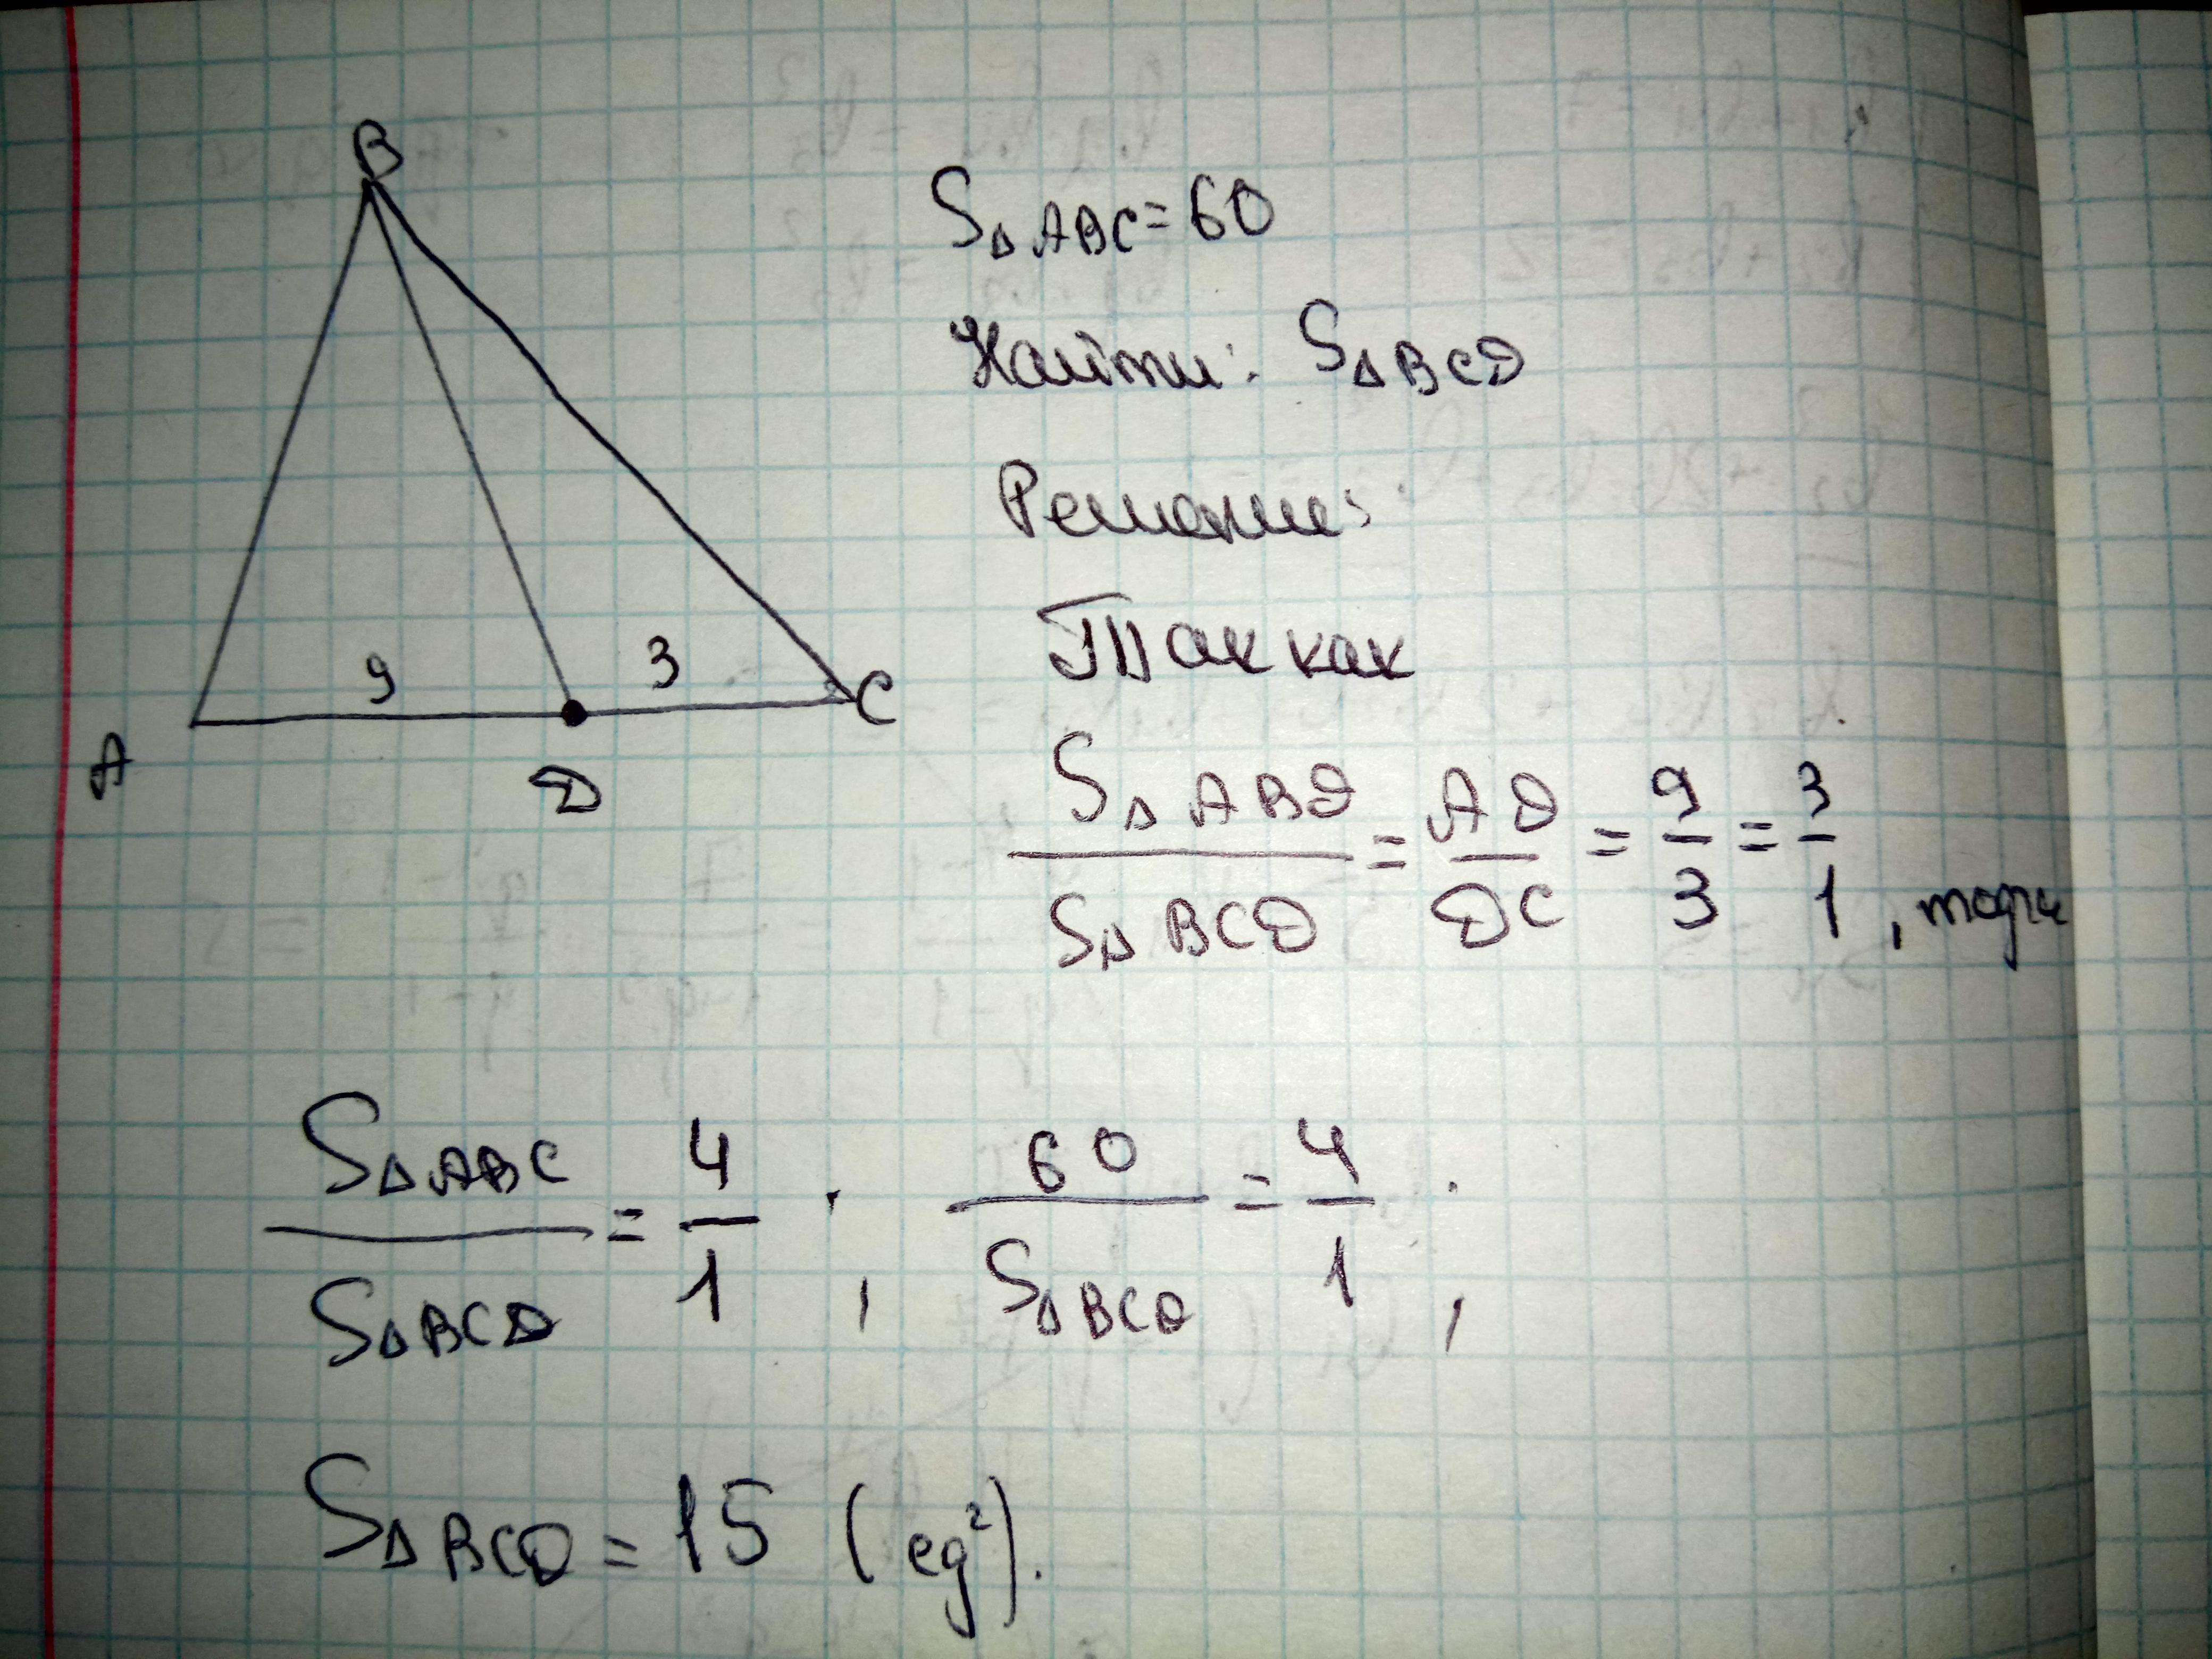 B
9
3
C
A
D
S△ABC=60
Найти: S△BCD
Решение:
Так как
S△ABD/S△BCD = AD/DC = 9/3 = 3/1, тогда
S△ABC/S△BCD = 4/1; 60/S△BCD = 4/1;
S△BCD = 15 (ед²).